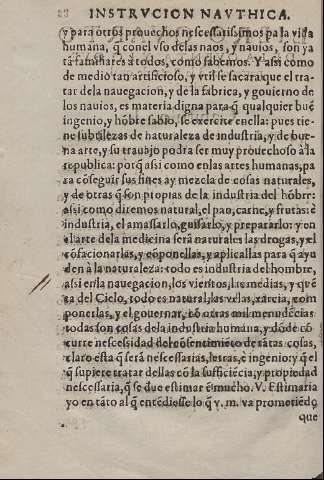 INSTRVCION NAVTHICA.
y para otros prouechos nescessarissimos pa la vida
humana, q̃ conel vso delas naos, y nauios, son ya
tã familiares a todos, como sabemos. Y assi como
de medio tan artificioso, y vtil se sacara que el tra-
tar dela nauegacion, y de la fabrica, y gouierno de
los nauios, es materia digna para q̃ qualquier buẽ
ingenio, y hõbre sabio, se exercite enella: pues tie-
ne subtilezas de naturaleza de industria, y de bue-
na arte, y su trauajo podra ser muy prouechoso à la
republica: porq̃ assi como enlas artes humanas, pa
ra cõseguir sus fines ay mezcla de cosas naturales,
y de otras q̃ son propias de la industria del hõbre:
assi como diremos natural, el pan, carne, y frutas: è
industria, el amassarlo, guisarlo, y prepararlo: y en
el arte dela medicina serã naturales las drogas, y el
cõfacionarlas, y cõponellas, y aplicallas para q̃ ayu
den à la naturaleza: todo es industria del hombre,
assi en la nauegacion, los vientos, las medias, y quẽ
ta del Cielo, todo es natural, las velas, xarcia, com
ponerlas, y el gouernar, cõ otras mil menudẽcias
todas son cosas dela industria humana, y dõde cõ
curre nescessidad del cõsentimiẽto de tãtas cosas,
claro esta q̃ serã nescessarias, letras, è ingenio: y q̃ el
q̃ supiere tratar dellas cõ la sufficiẽcia, y propiedad
nescessaria, q̃ se due estimar ẽ mucho. V. Estimaria
yo en tãto al q̃ entẽdiesse lo q̃ v. m. va prometiẽdo,
que